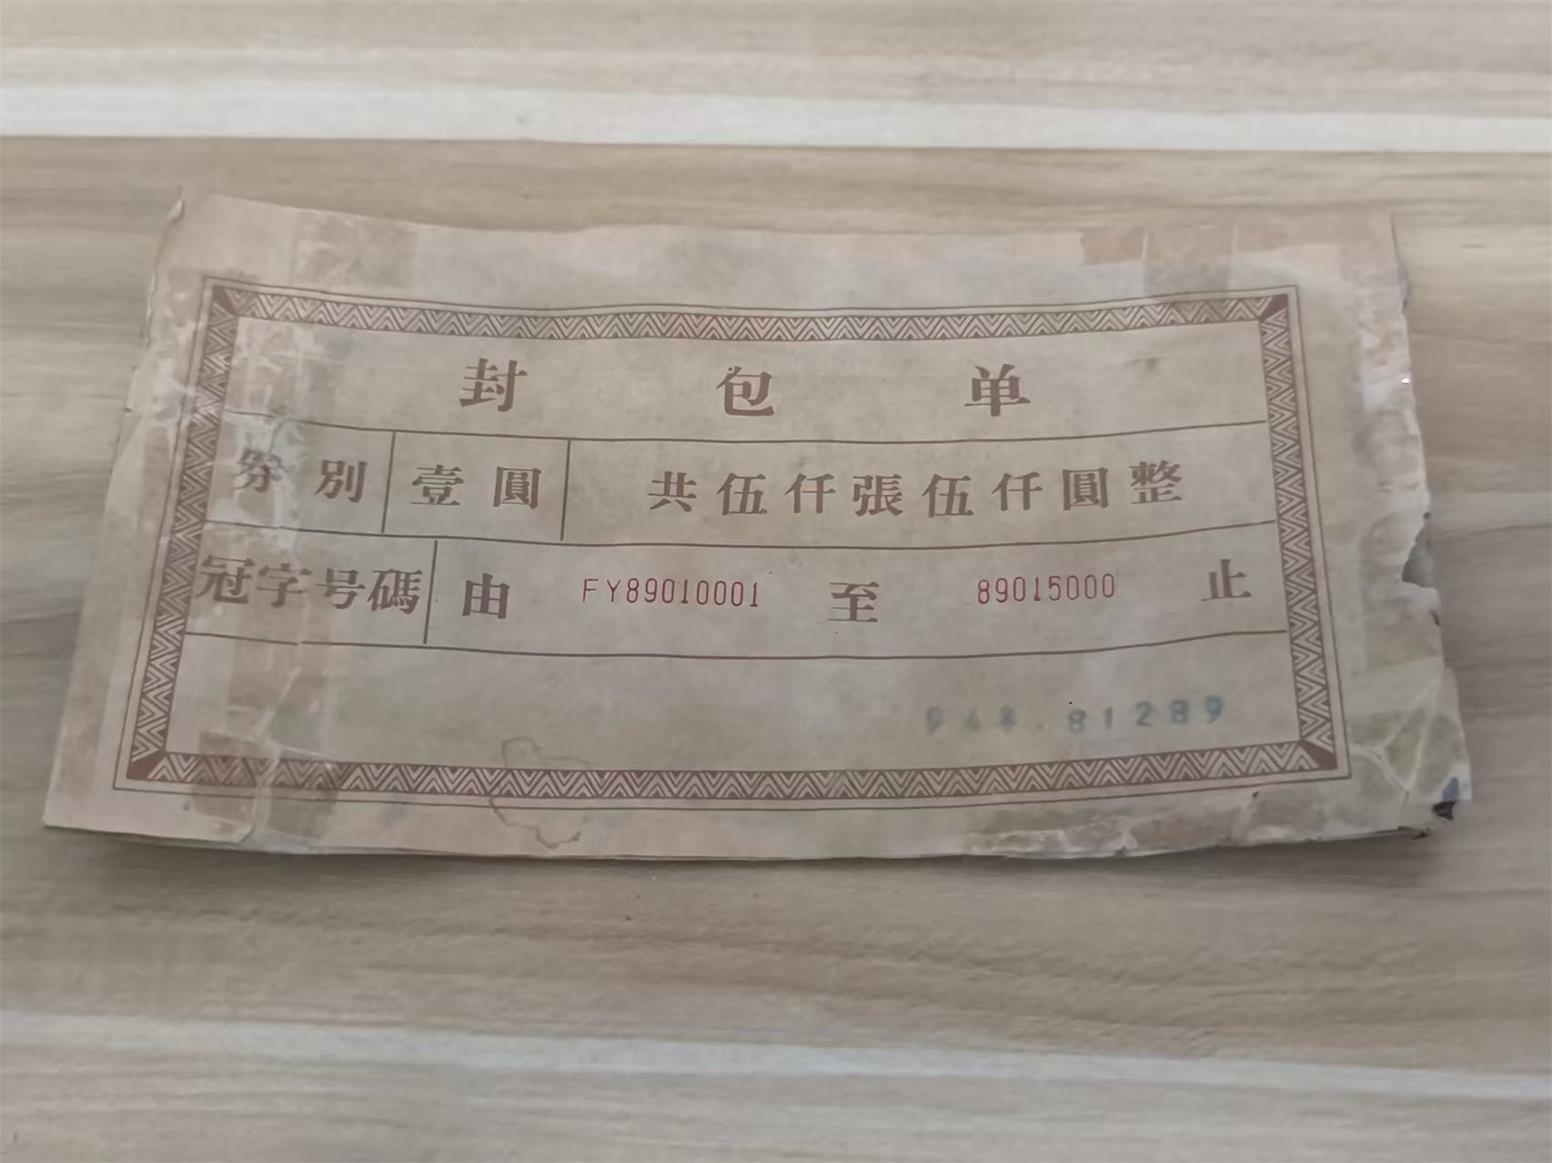 封包单
券別 壹圓 共伍仟張伍仟圓整
冠字号碼 由 FY89010001 至 89015000 止
81289